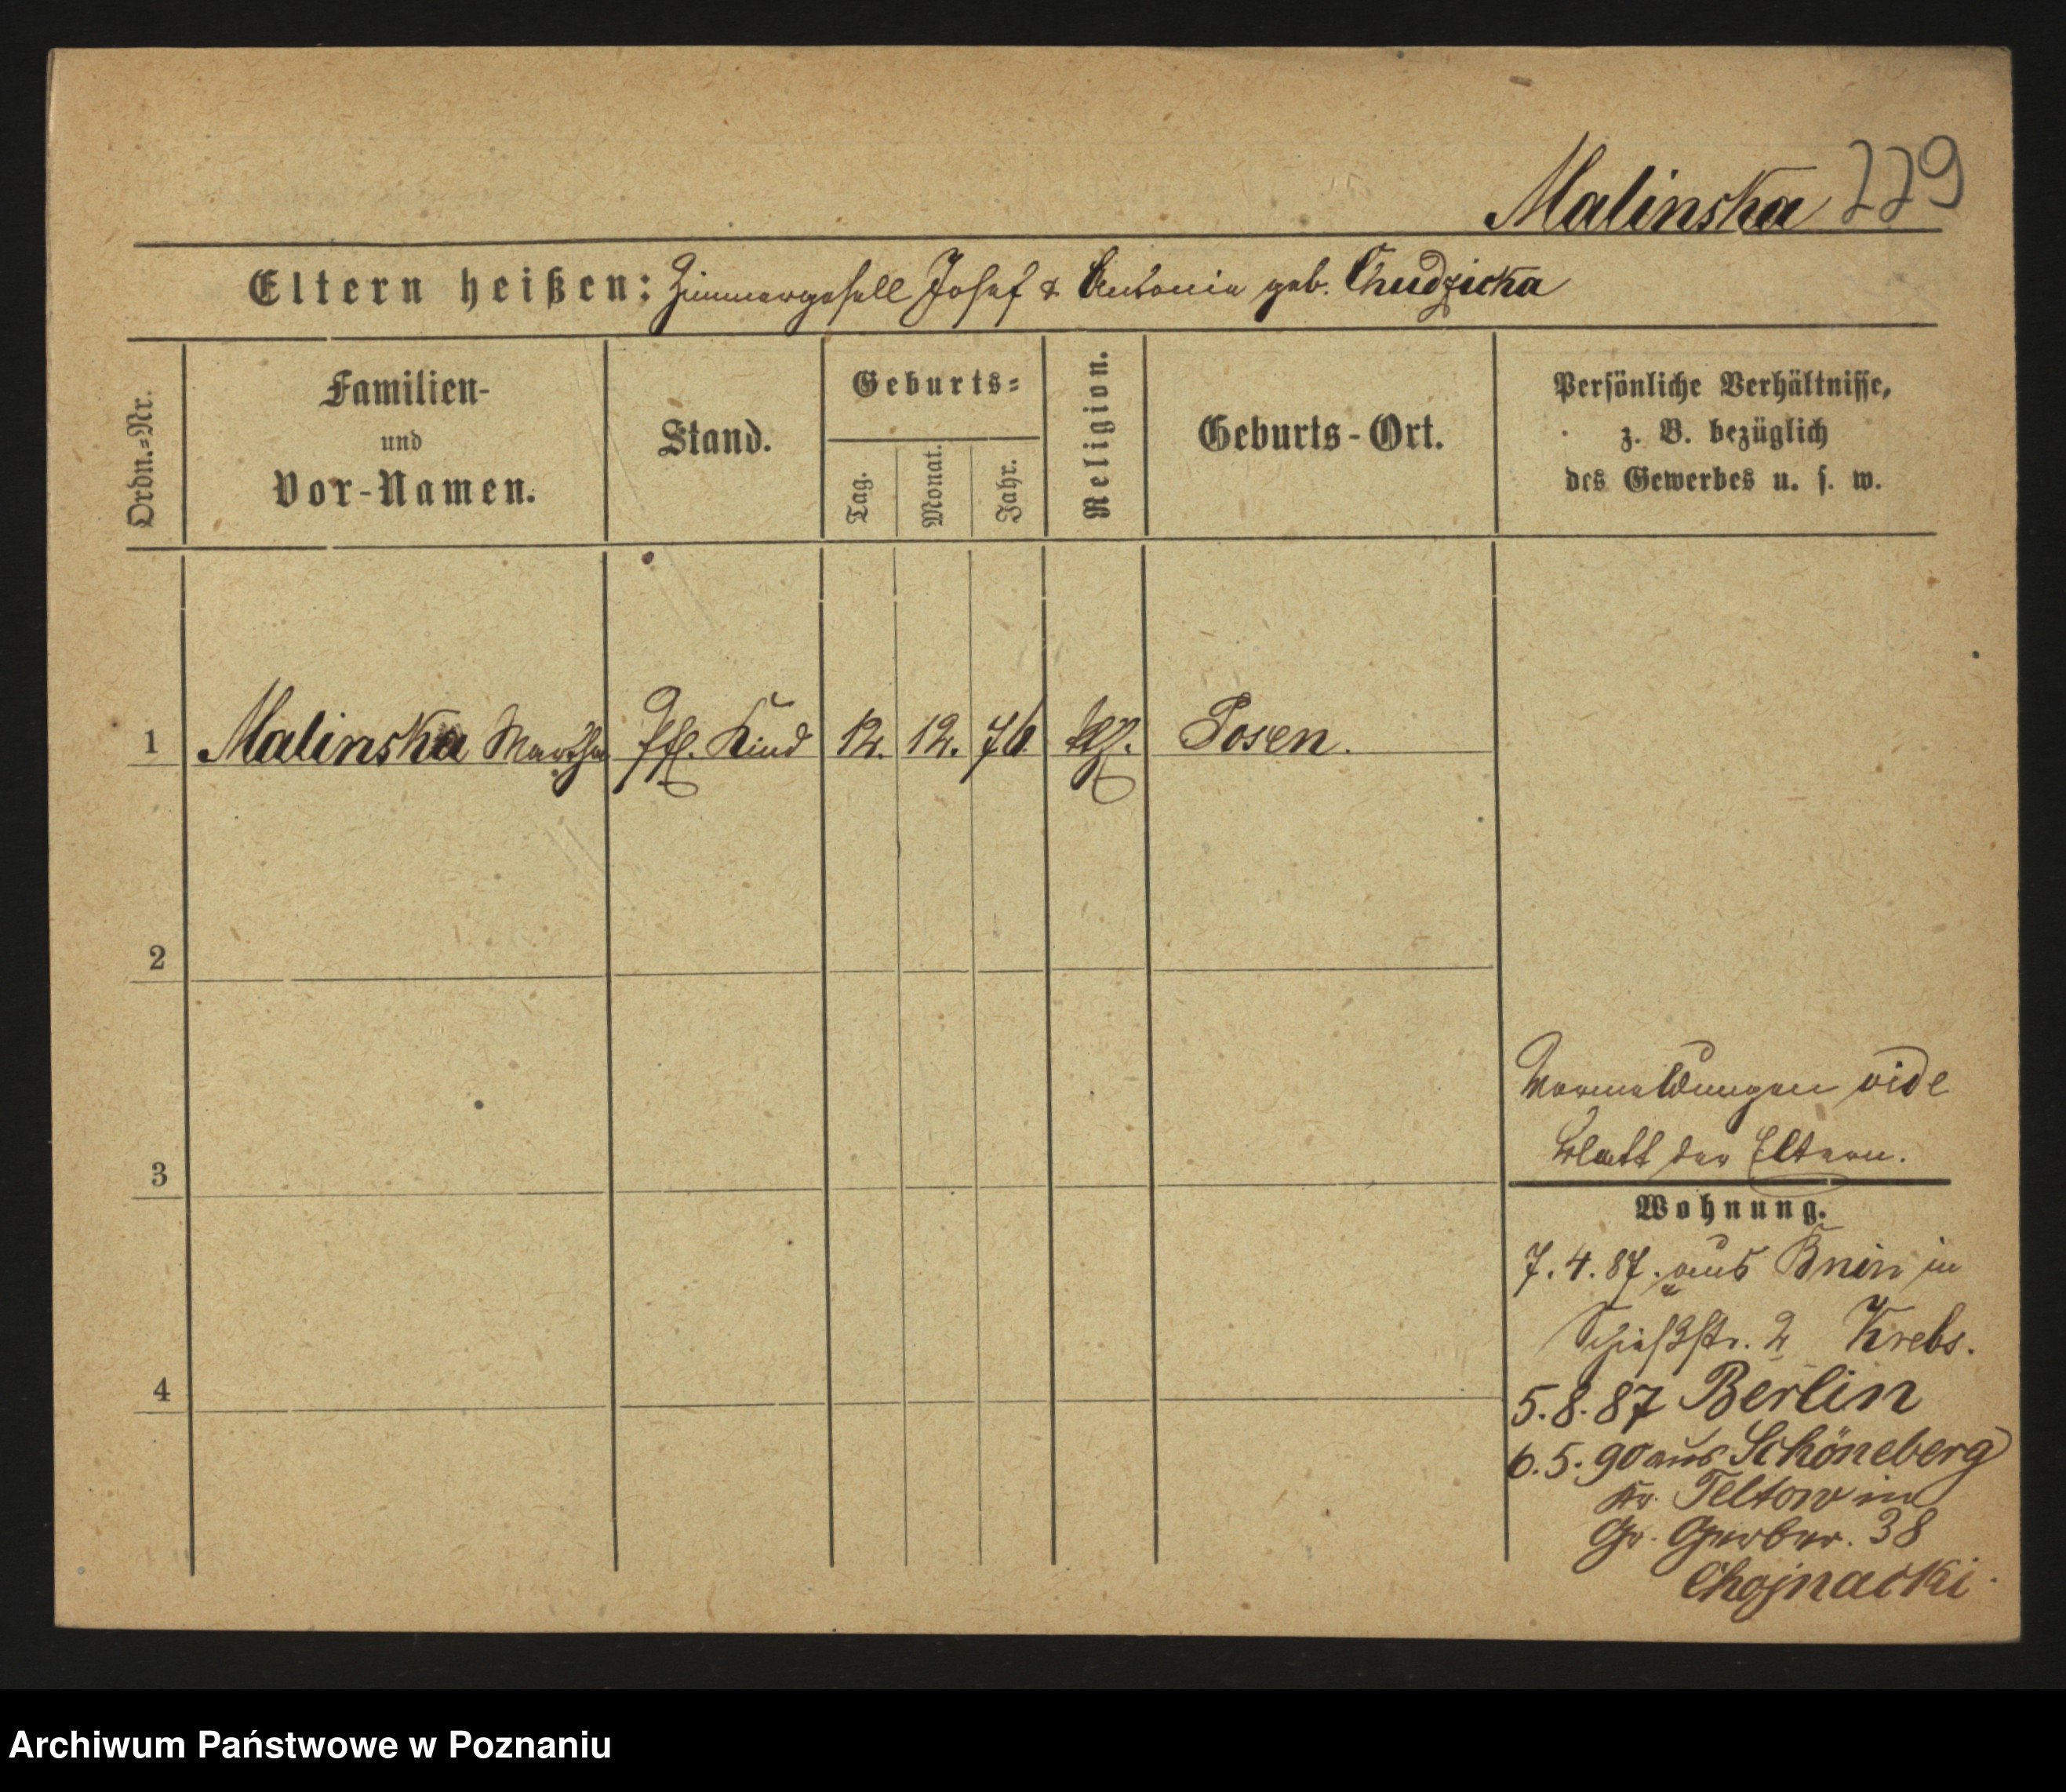 Malinska 229
Eltern heißen: Zimmergesell Josef & Antonie geb. Chudzicka
Ordn.=Nr.
Familien-
und
Vor-Namen.
Stand.
Geburts=
Tag.
Monat.
Jahr.
Religion.
Geburts-Ort.
Persönliche Verhältnisse,
z. B. bezüglich
des Gewerbes u. s. w.
1 Malinska Martha Pfl. Kind 12. 12. 76 Posen.
2
3
4
Vormeldungen vide
Blatt der Eltern.
Wohnung.
7.4.87. aus Bnin in
Schießstr. 2 Krebs.
5.8.87 Berlin
6.5.90 aus Schöneberg
Kr. Teltow in
Gr. Gerber. 38
Chojnacki.
Archiwum Państwowe w Poznaniu